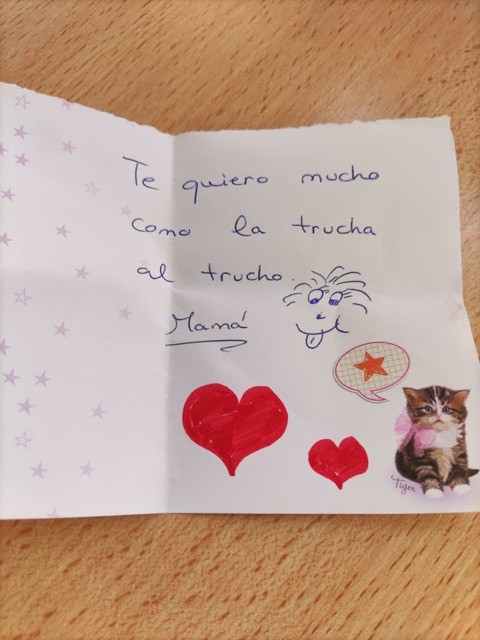 Te quiero mucho
como la trucha
al trucho.
Mamá
Tiger